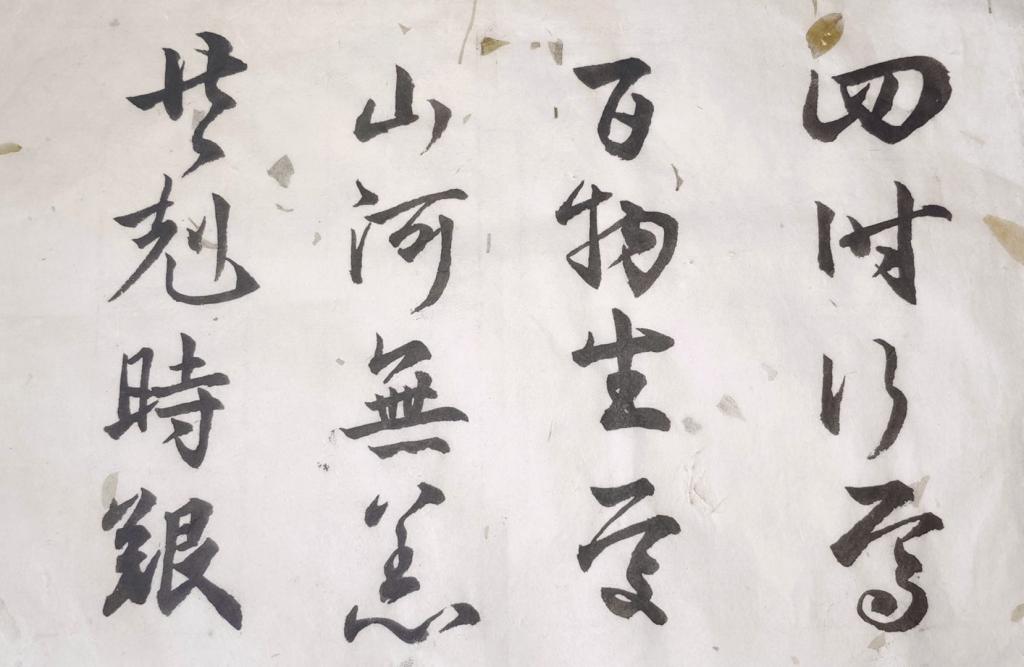 四时行焉
百物生
山河無恙
共剋時艱